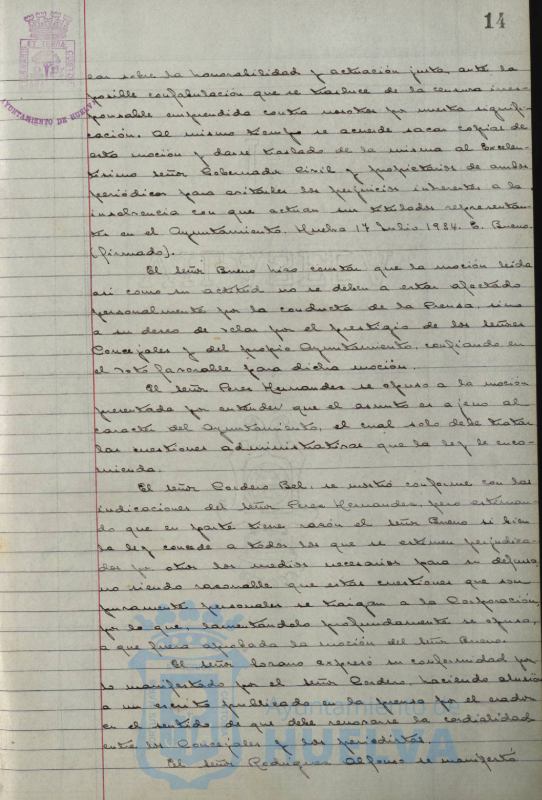 14
AYUNTAMIENTO DE HUELVA
sobre la honorabilidad y actuación justa, ante la
posible confabulación que se trasluce de la censura irres-
ponsable emprendida contra nosotros por nuestra signifi-
cación. Al mismo tiempo se acuerde sacar copias de
esta moción y darse traslado de la misma al Excelen-
tísimo señor Gobernador Civil y propietarios de ambos
periódicos para evitarles los perjuicios inherentes a la
insolvencia con que actuan sus titulados representan-
tes en el Ayuntamiento. Huelva 17 Julio 1934. E. Bueno.
(firmado).
El señor Bueno hizo constar que la moción leida
así como su actitud no se deben a estar afectado
personalmente por la conducta de la Prensa, sino
a su deseo de velar por el prestigio de los señores
Concejales y del propio Ayuntamiento, confiando en
el voto favorable para dicha moción.
El señor Perez Hernandez se opuso a la moción
presentada por entender que el asunto es ajeno al
caracter del Ayuntamiento, el cual solo debe tratar
las cuestiones administrativas que la ley le enco-
mienda.
El señor Cordero Bel, se mostró conforme con las
indicaciones del señor Perez Hernandez, pero estiman-
do que en parte tiene razón el señor Bueno si bien
la ley concede a todos los que se estimen perjudica-
dos por otros los medios necesarios para su defensa
no siendo razonable que estas cuestiones que son
puramente personales se traigan a la Corporación,
por lo que, lamentándolo profundamente se oponía,
a que fuera aprobada la moción del señor Bueno.
El señor Lozano expresó su conformidad por
lo manifestado por el señor Cordero, haciendo alusión
a un escrito publicado en la prensa por el orador
en el sentido de que debe renovarse la cordialidad
entre los Concejales y los periodistas.
El señor Rodriguez Alfonso se manifestó
Ayuntamiento de
HUELVA